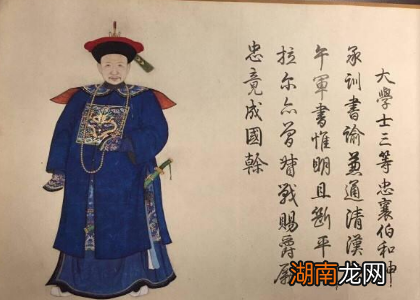 大學士三等忠襄伯和珅
承訓書諭兼通清漢
午軍書惟明且斷平
拉尔亦曾督戰賜爵
忠竟成國幹
湖南龙网